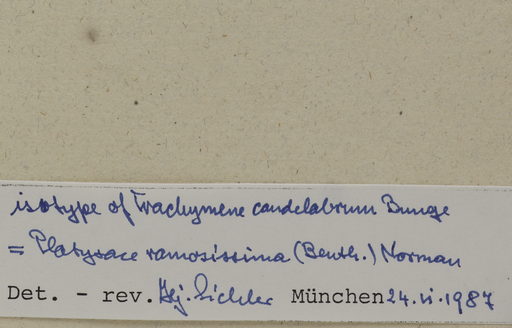 isotype of Trachymene candelabrum Bunge
= Platysace ramosissima (Benth.) Norman
Det. - rev. Hj. Eichler München 24.vi.1987